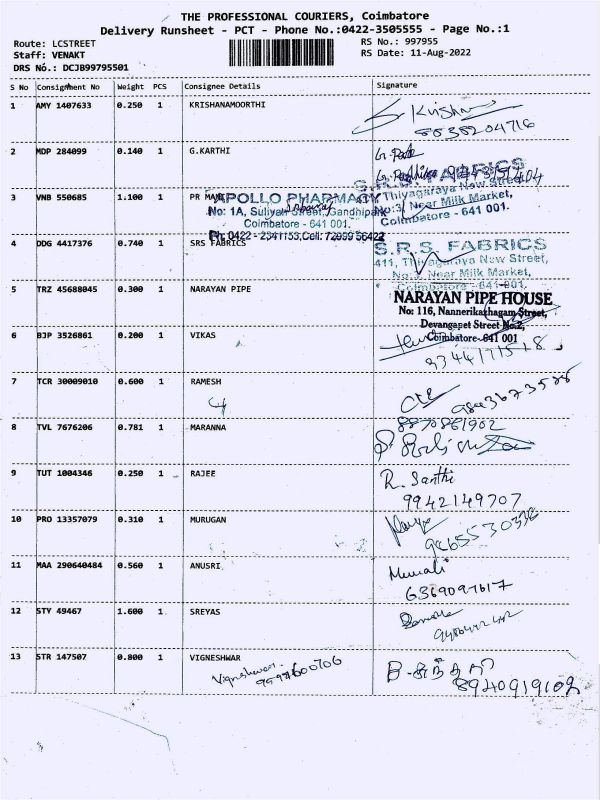 THE PROFESSIONAL COURIERS, Coimbatore
Delivery Runsheet - PCT - Phone No.:0422-3505555 - Page No.:1
Route: LCSTREET
RS No.: 997955
Staff: VENAKT
RS Date: 11-Aug-2022
DRS No.: DCJB99795501
S No Consignment No Weight PCS Consignee Details Signature
1 AMY 1407633 0.250 1 KRISHANAMOORTHI
2 MDP 284099 0.140 1 G.KARTHI
S.R.S. FABRICS
Thiyagaraya New Street,
3 VNB 550685 1.100 1 PR
APOLLO PHARMACY
No: 1A, Suliyan Street, Gandhipark
Near Milk Market,
Coimbatore - 641 001.
Coimbatore - 641 001.
Ph: 0422 - 2341153, Cell: 72999 56422
4 DDG 4417376 0.740 1 SRS FABRICS
S.R.S. FABRICS
411, Thiyagaraya New Street,
Near Milk Market,
Coimbatore - 641-001.
5 TRZ 45688045 0.300 1 NARAYAN PIPE
NARAYAN PIPE HOUSE
No: 116, Nannerikazhagam Street,
Devangapet Street No.2,
Coimbatore-641 001
6 BJP 3526861 0.200 1 VIKAS
7 TCR 30009010 0.600 1 RAMESH
8 TVL 7676206 0.781 1 MARANNA
8870861902
9 TUT 1004346 0.250 1 RAJEE
R. Santhi
9942149707
10 PRO 13357079 0.310 1 MURUGAN
9865530338
11 MAA 290640484 0.560 1 ANUSRI
Murali
6369097617
12 STY 49467 1.600 1 SREYAS
13 STR 147507 0.800 1 VIGNESHWAR
Vigneshwar
8940919102